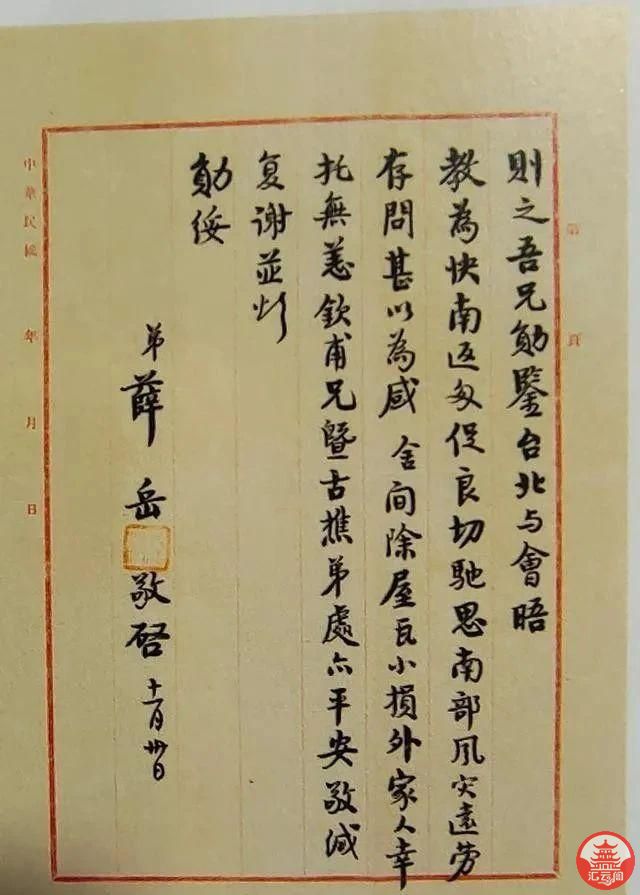 第 頁
則之吾兄勛鑒台北与會晤
教為快南返匆促良切馳思南部風灾遠劳
存問甚以為感舍間除屋瓦小損外家人幸
托無恙欽甫兄暨古樵弟處亦平安敬
复谢並
勛綏
弟薛岳敬啓十一月卅日
中華民國 年 月 日
汇云阁